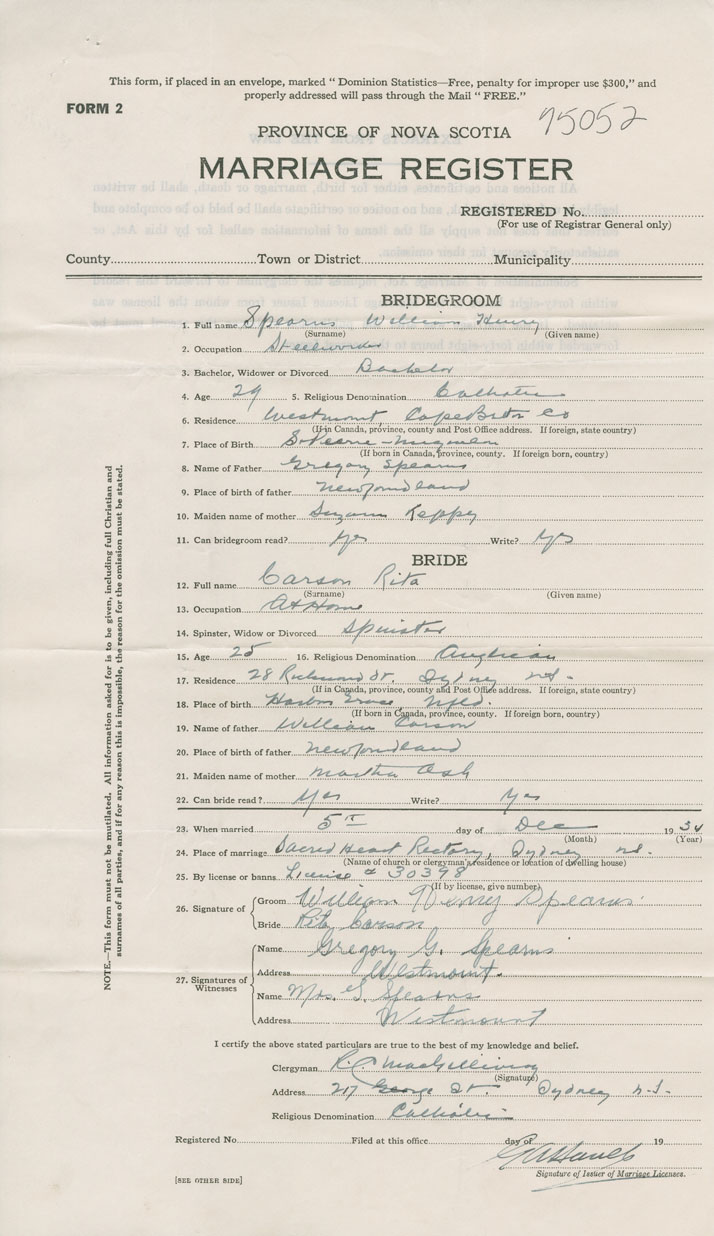 This form, if placed in an envelope, marked " Dominion Statistics—Free, penalty for improper use $300," and
properly addressed will pass through the Mail " FREE."
FORM 2
75052
PROVINCE OF NOVA SCOTIA
MARRIAGE REGISTER
REGISTERED No.
(For use of Registrar General only)
County Town or District Municipality
BRIDEGROOM
1. Full name Spearns William Henry
(Surname) (Given name)
2. Occupation Steelworker
3. Bachelor, Widower or Divorced Bachelor
4. Age 29 5. Religious Denomination Catholic
6. Residence Westmount, Cape Breton Co
(If in Canada, province, county and Post Office address. If foreign, state country)
7. Place of Birth St Pierre - Miquelon
(If born in Canada, province, county. If foreign born, country)
8. Name of Father Gregory Spearns
9. Place of birth of father Newfoundland
10. Maiden name of mother Suzann Keppy
11. Can bridegroom read? yes Write? yes
BRIDE
12. Full name Carson Rita
(Surname) (Given name)
13. Occupation At Home
14. Spinster, Widow or Divorced Spinster
15. Age 25 16. Religious Denomination Anglican
17. Residence 28 Richmond St. Sydney
(If in Canada, province, county and Post Office address. If foreign, state country)
18. Place of birth Harbor Grace Nfld.
(If born in Canada, province, county. If foreign born, country)
19. Name of father William Carson
20. Place of birth of father Newfoundland
21. Maiden name of mother Martha Ash
22. Can bride read? Yes Write? Yes
23. When married 5th day of Dec 1934
(Month) (Year)
24. Place of marriage Sacred Heart Rectory, Sydney
(Name of church or clergyman's residence or location of dwelling house)
25. By license or banns License # 30398
(If by license, give number)
26. Signature of
Groom William Henry Spearns
Bride Rita Carson
27. Signatures of Witnesses
Name Gregory G. Spearns
Address Westmount.
Name Mrs. G. Spearns
Address Westmount
I certify the above stated particulars are true to the best of my knowledge and belief.
Clergyman R.C. MacGillivray
(Signature)
Address 217 George St. Sydney N.S.
Religious Denomination Catholic
Registered No. Filed at this office day of 19
Signature of Issuer of Marriage Licenses.
[SEE OTHER SIDE]
NOTE.—This form must not be mutilated. All information asked for is to be given, including full Christian and
surnames of all parties, and if for any reason this is impossible, the reason for the omission must be stated.